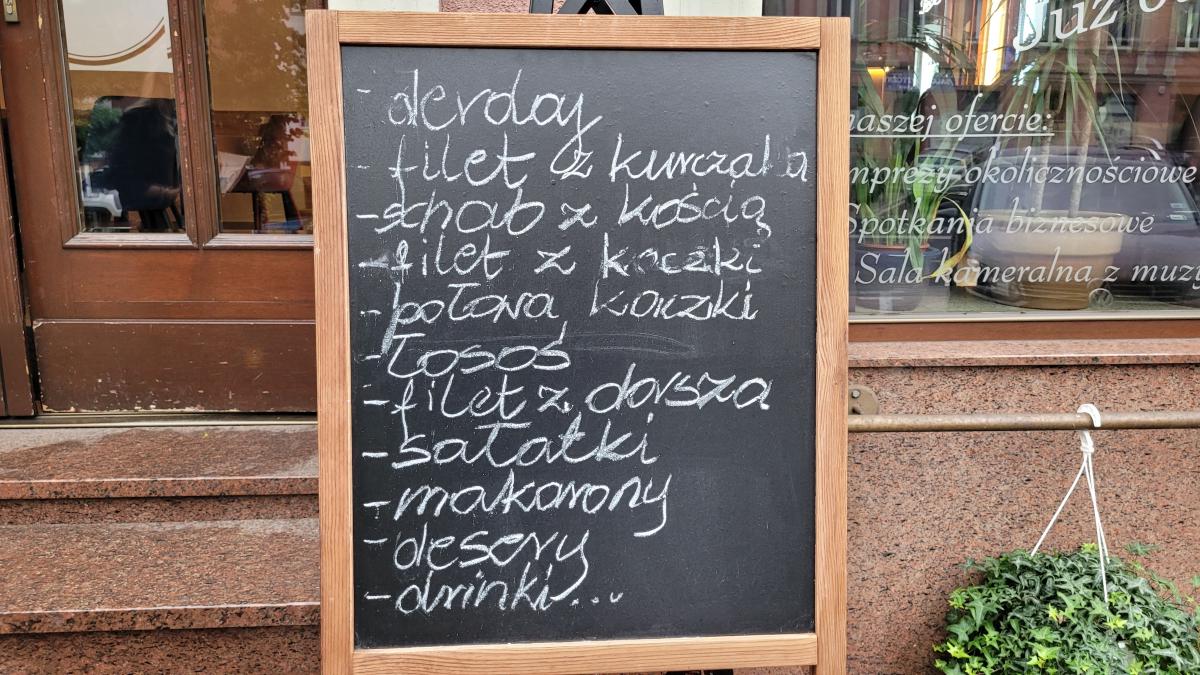 - derday
- filet z kurczaka
- schab z kością
- filet z kaczki
- połowa kaczki
- łosoś
- filet z dorsza
- sałatki
- makarony
- desery
- drinki...
Już
naszej ofercie:
mprezy okolicznościowe
Spotkania biznesowe
Sala kameralna z muzy